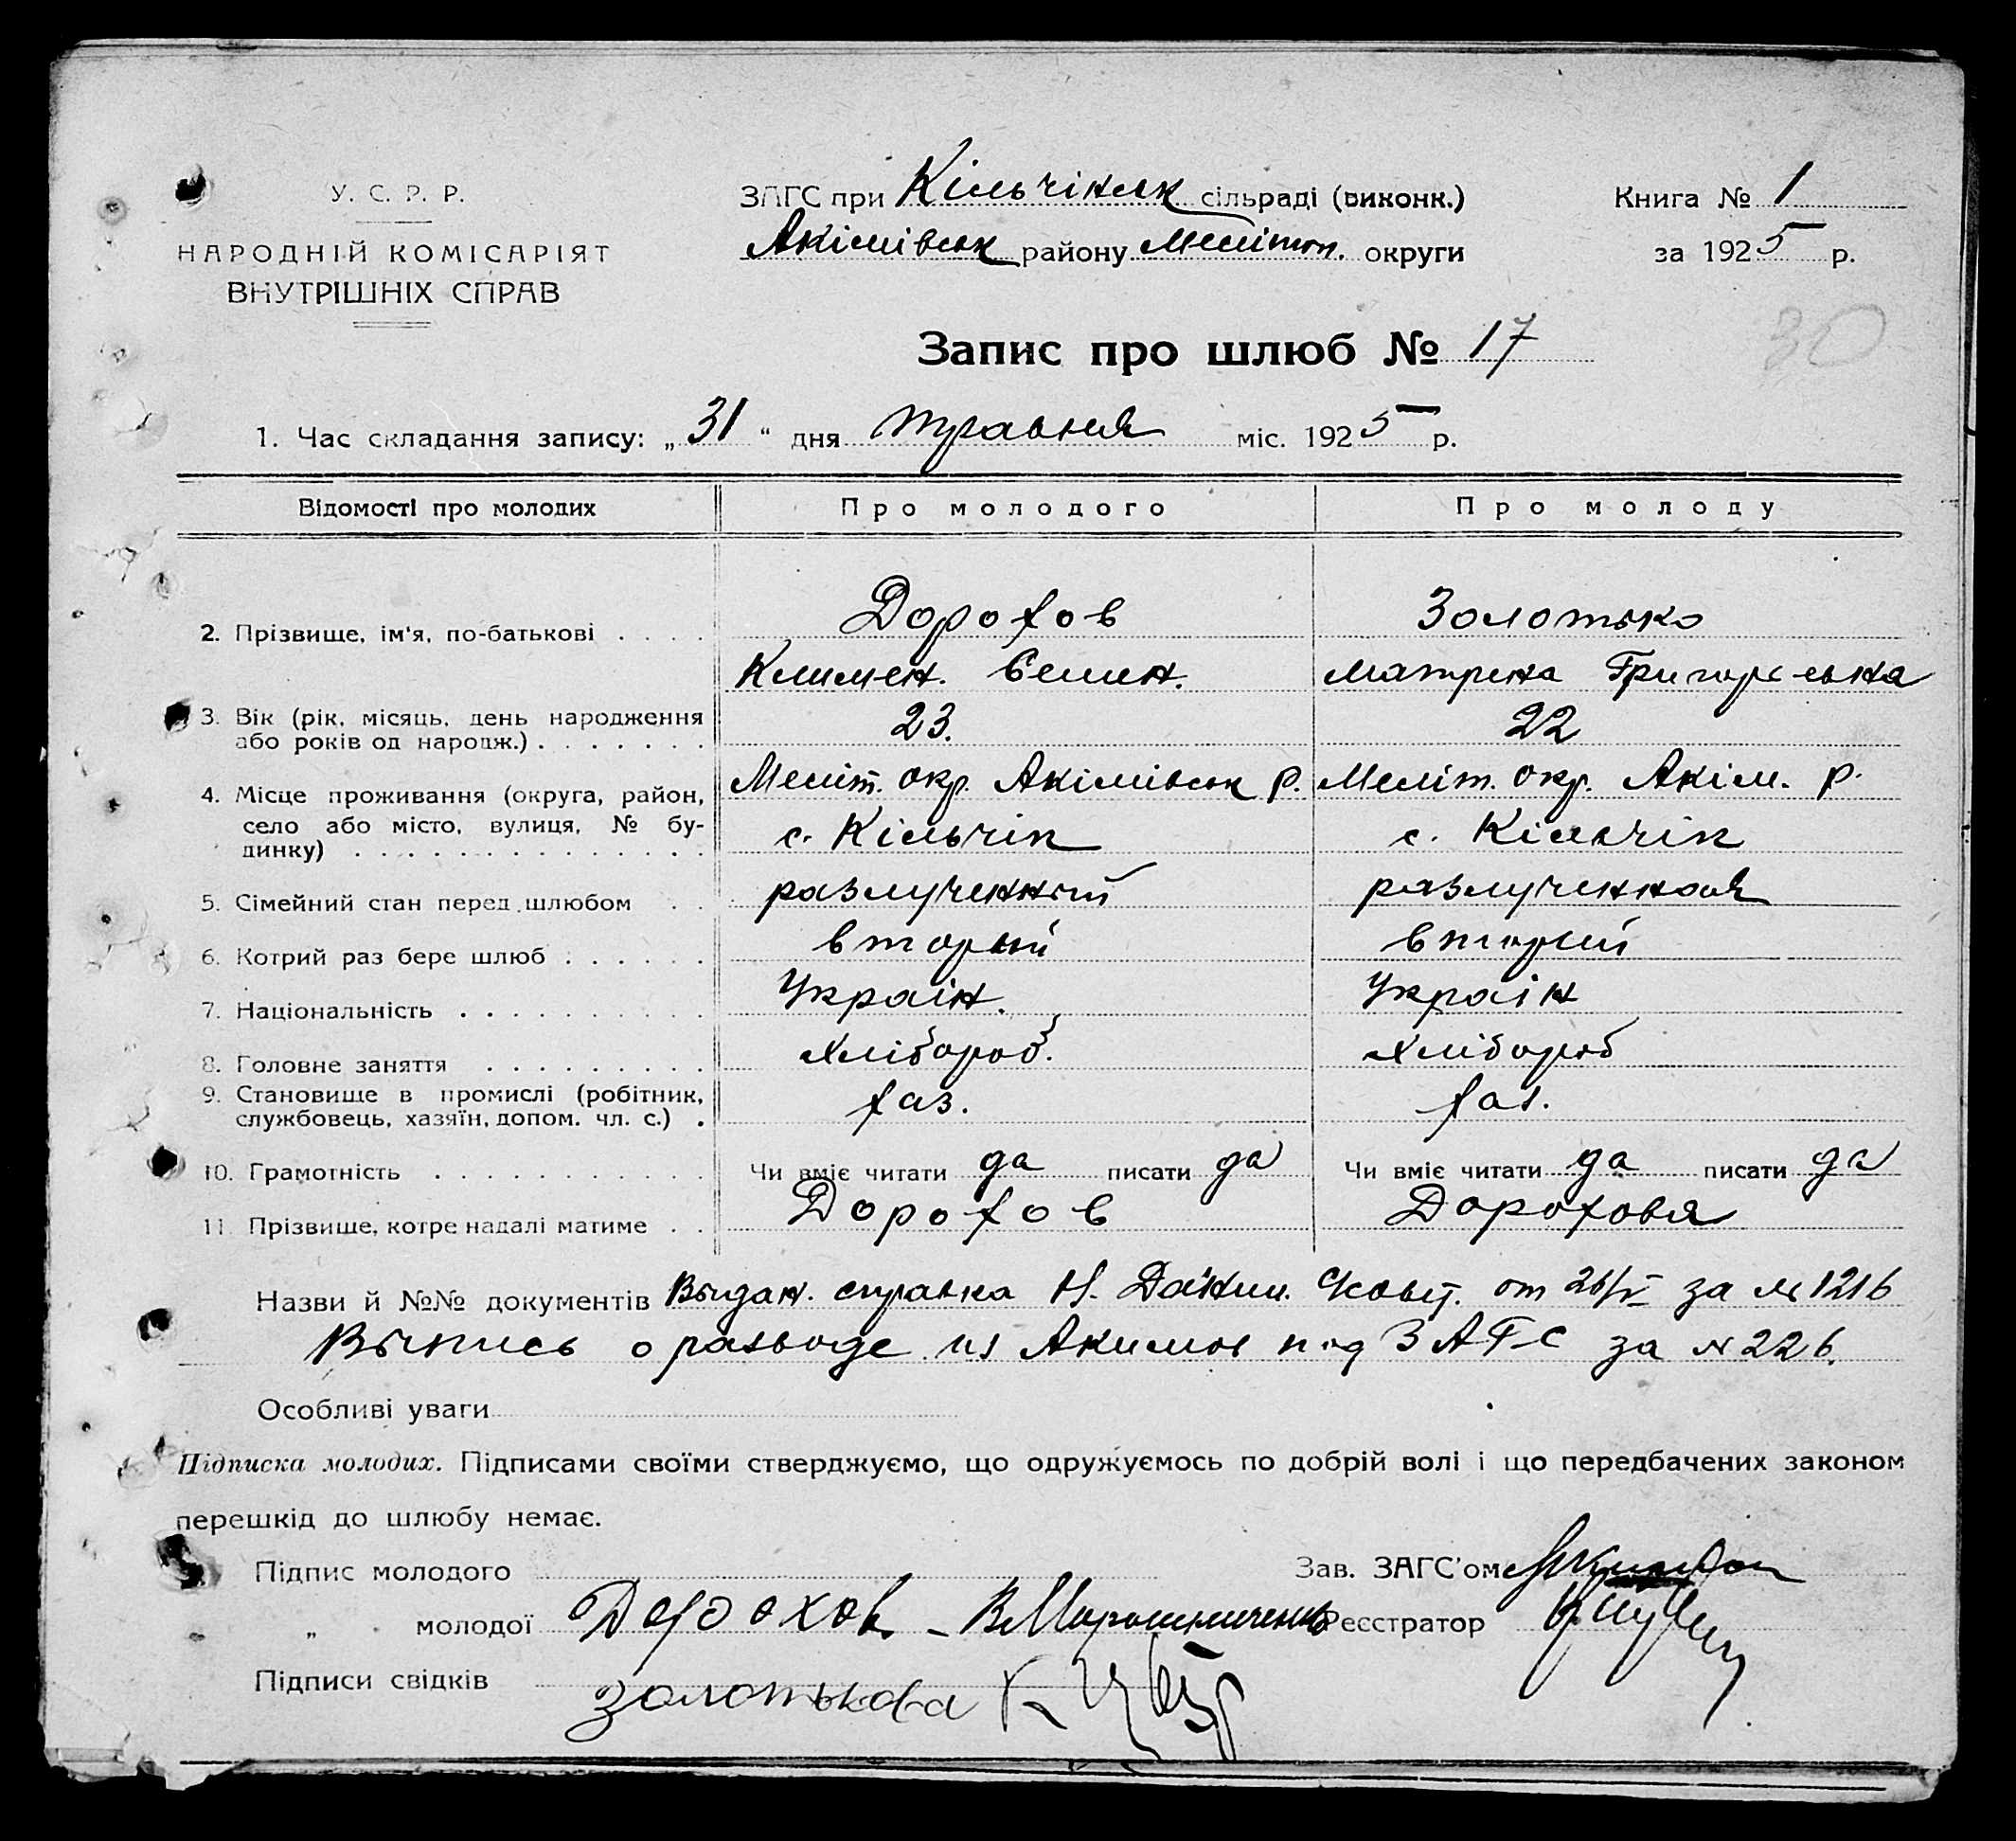 У. С. Р. Р.
НАРОДНІЙ КОМІСАРІЯТ
ВНУТРІШНІХ СПРАВ
ЗАГС при Кільчінськ сільраді (виконк.)
Акімівськ району Меліт. округи
Книга № 1
за 1925 р.
30
Запис про шлюб № 17
1. Час складання запису: „31“ дня травня міс. 1925 р.
Відомості про молодих
Про молодого
Про молоду
2. Прізвище, ім'я, по-батькові
Дорохов
Климен. Семен.
Золотько
Матрена Григорьевна
3. Вік (рік, місяць, день народження
або років од народж.)
23.
22
4. Місце проживання (округа, район,
село або місто, вулиця, № бу-
динку)
Меліт. окр. Акімівськ р.
с. Кільчік
Меліт. окр. Акім. р.
с. Кільчік
5. Сімейний стан перед шлюбом
разлученный
разлученная
6. Котрий раз бере шлюб
вторый
вторый
7. Національність
Україн.
Україн
8. Головне заняття
хлібороб.
хлібороб
9. Становище в промислі (робітник,
службовець, хазяїн, допом. чл. с.)
хаз.
хаз.
10. Грамотність
Чи вміє читати да писати да
Чи вміє читати да писати да
11. Прізвище, котре надалі матиме
Дорохов
Дорохова
Назви й №№ документів Выдан. справка Н. Данил. от 26/V за № 1216
Выпись о разводе из Акимов под ЗАГС за № 226.
Особливі уваги
Підписка молодих. Підписами своїми стверджуємо, що одружуємось по добрій волі і що передбачених законом
перешкід до шлюбу немає.
Підпис молодого
Зав. ЗАГС'ом
„ молодої Дорохов
Реєстратор
Підписи свідків
Золотькова